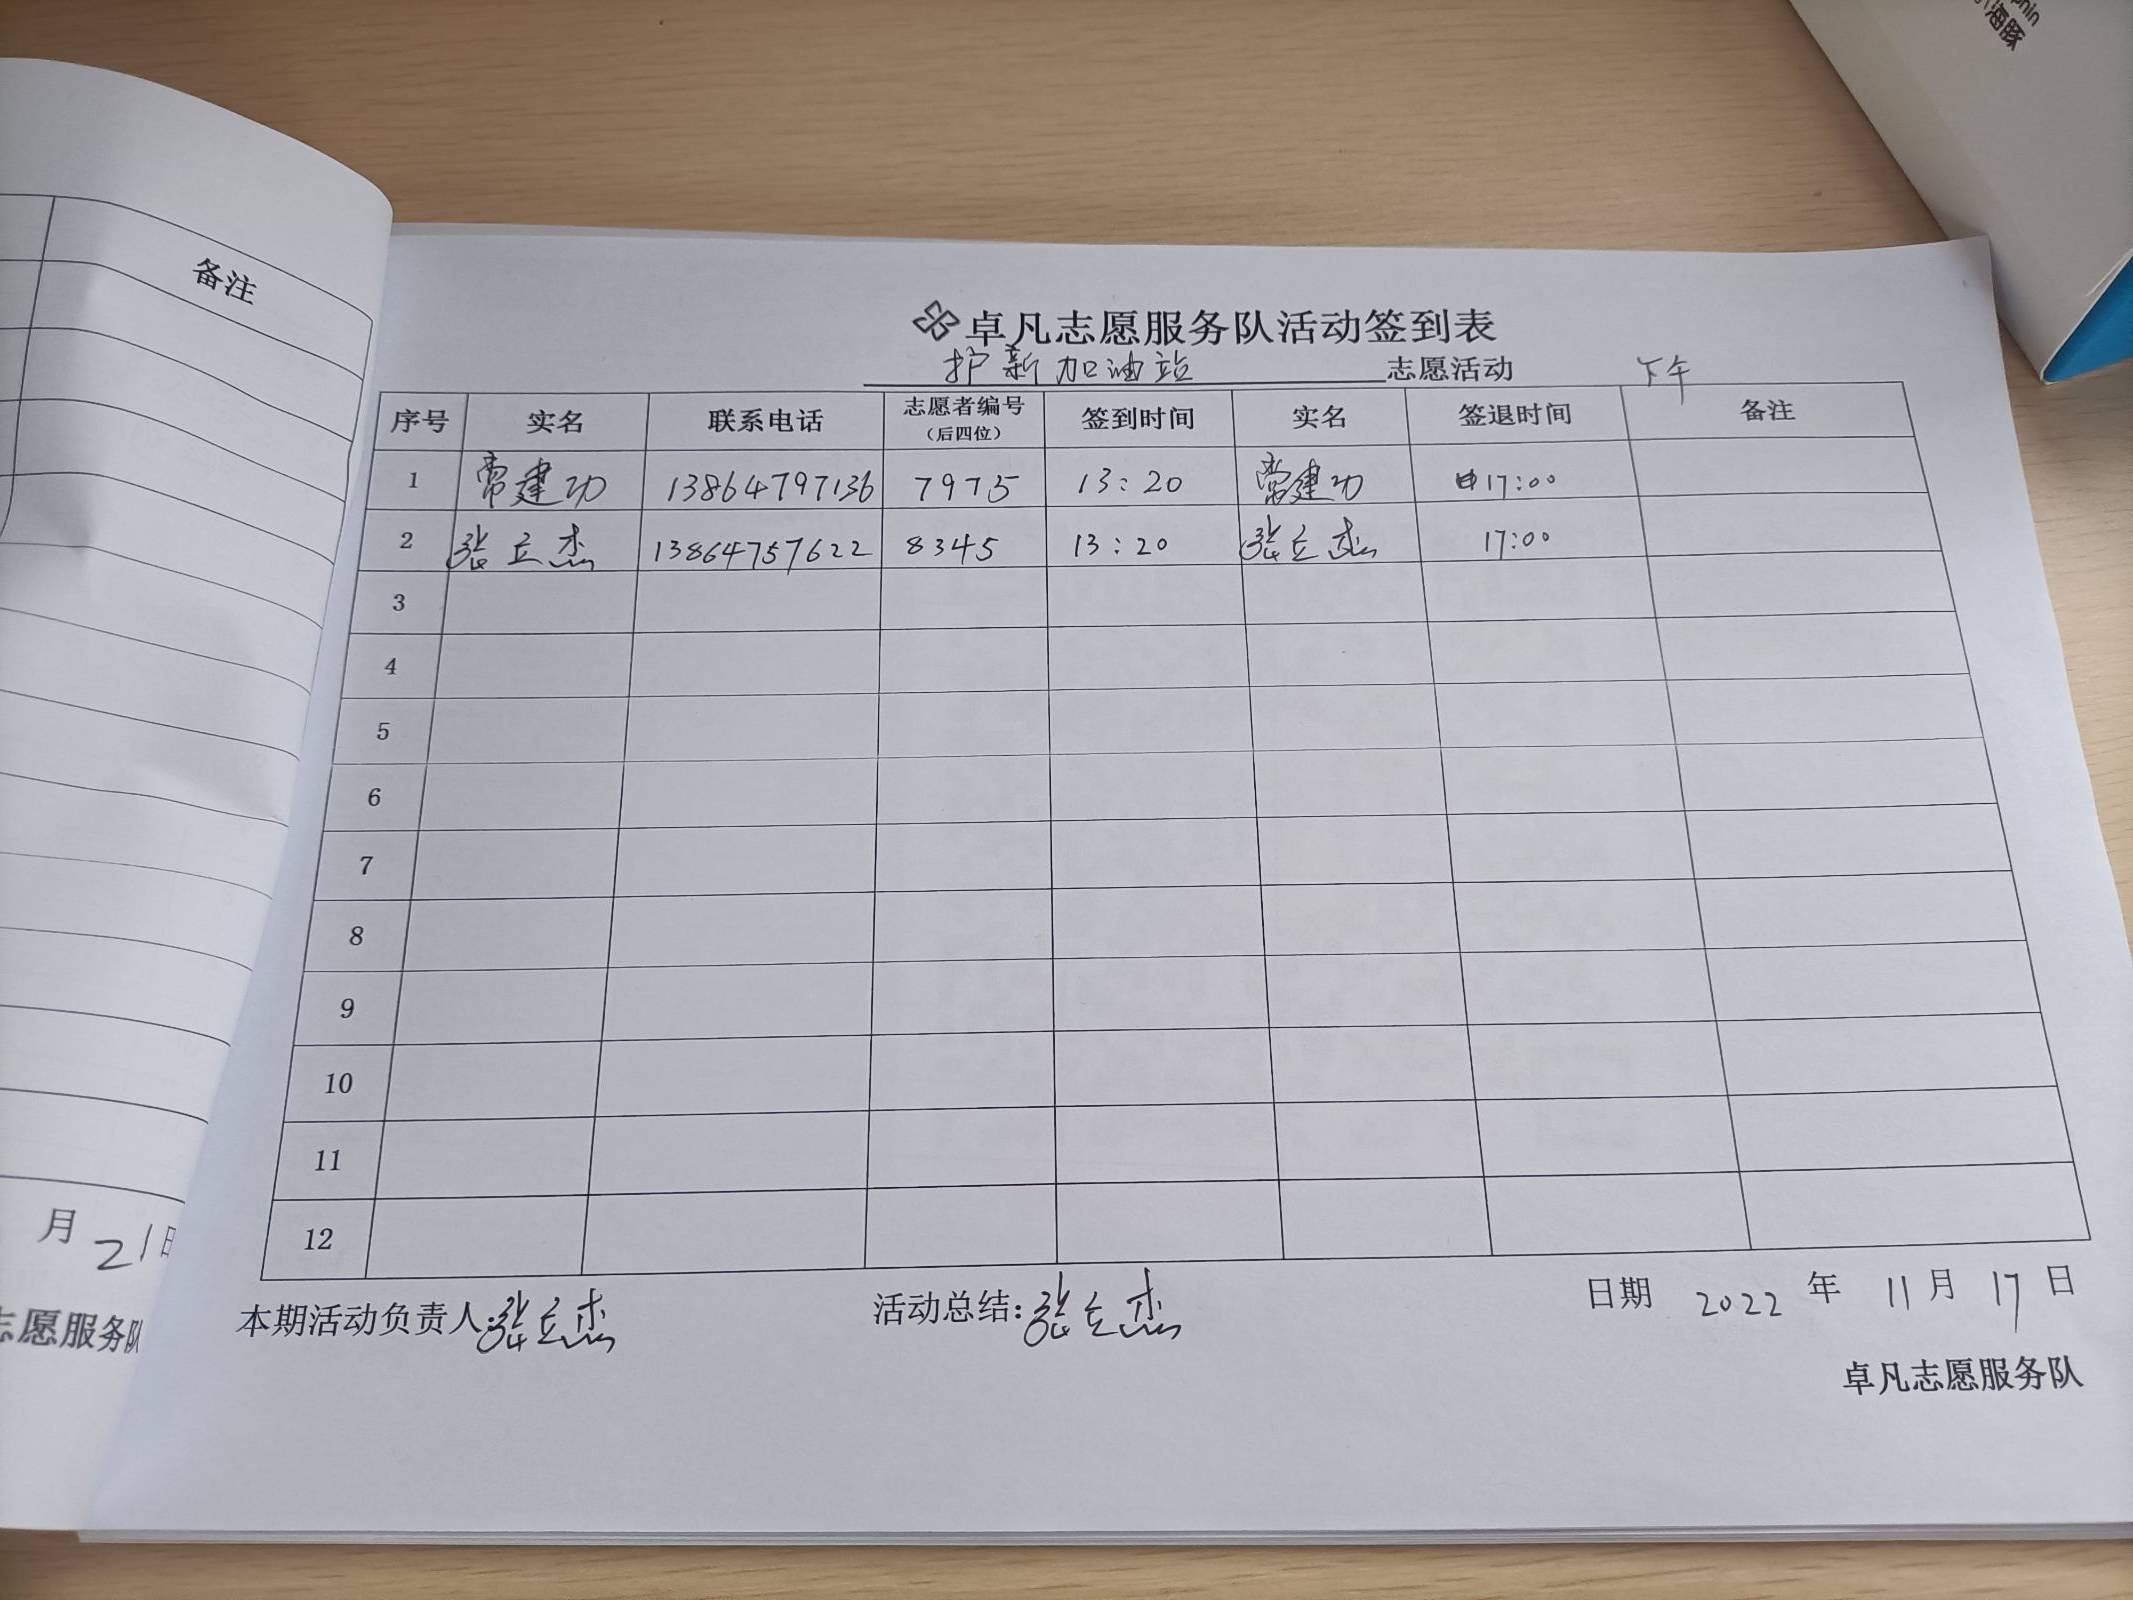 phin
海豚
备注
月21日
志愿服务队
卓凡志愿服务队活动签到表
护新加油站 志愿活动 下午
序号 实名 联系电话 志愿者编号（后四位） 签到时间 实名 签退时间 备注
1 常建功 13864797136 7975 13:20 常建功 17:00
2 张立杰 13864757622 8345 13:20 张立杰 17:00
3
4
5
6
7
8
9
10
11
12
本期活动负责人:张立杰 活动总结:张立杰 日期 2022 年 11 月 17 日
卓凡志愿服务队